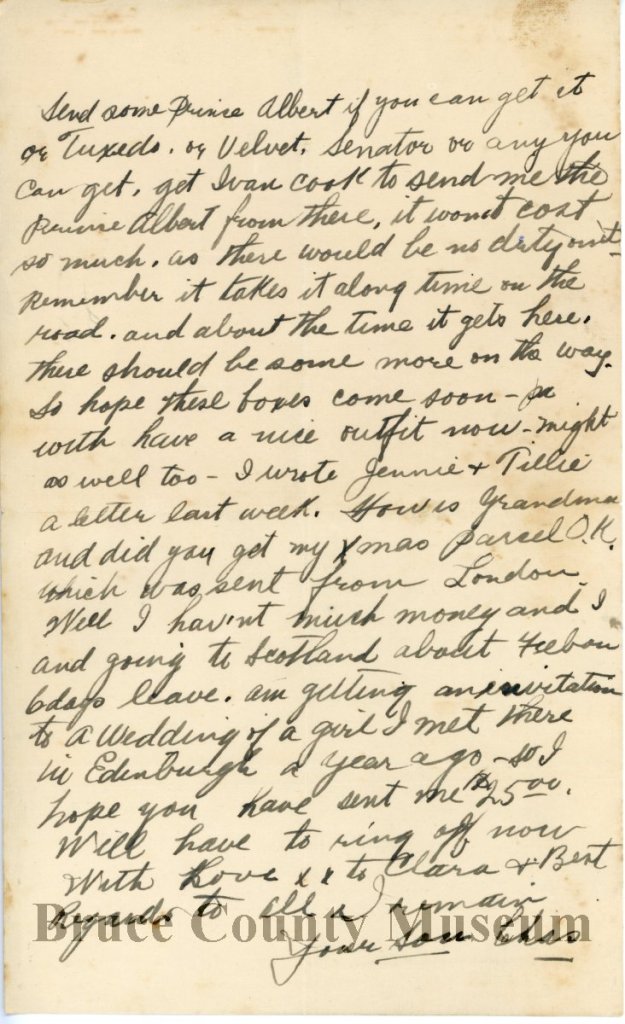 Send some Prince Albert if you can get it
or Tuxedo. or Velvet, Senator or any you
can get. get Ivan Cook to send me the
Prince Albert from there, it wont cost
so much. as there would be no duty on it
Remember it takes it along time on the
road. and about the time it gets here.
there should be some more on the way.
So hope these boxes come soon -
with have a nice outfit now - might
as well too - I wrote Jennie & Tillie
a letter last week. How is Grandma
and did you get my Xmas parcel O.K.
which was sent from London.
Well I hav'nt much money and I
and going to Scotland about Feb on
6 days leave. am getting an invitation
to a wedding of a girl I met there
in Edinburgh a year ago - so I
hope you have sent me 25 00.
Will have to ring off now
With Love x x to Clara & Best
Regards to all I remain
Your Son Chas
Bruce County Museum